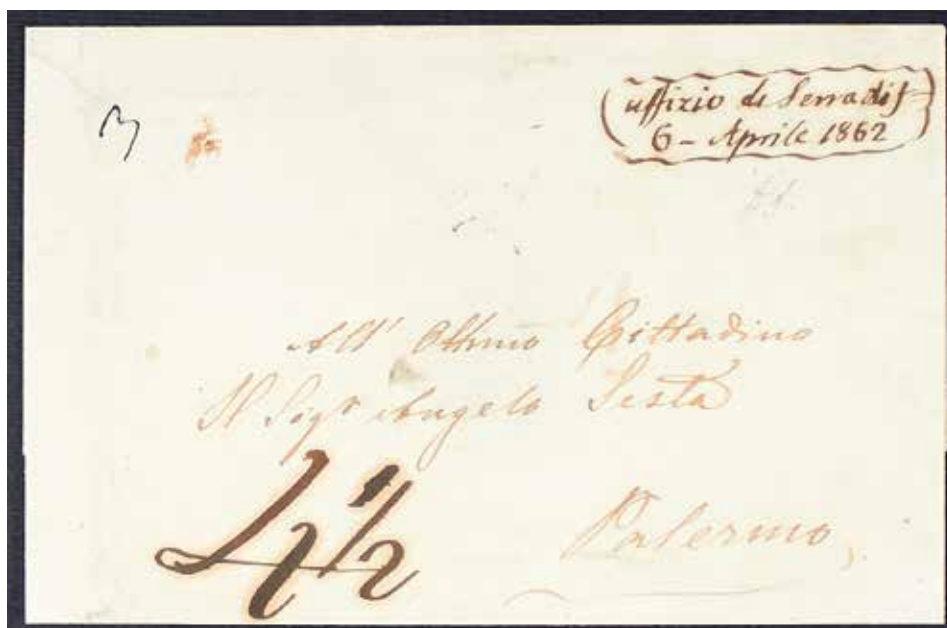 uffizio di Serradif
6 - Aprile 1862
3
All' Ottimo Cittadino
Il Sigr Angelo Sestà
4 1/2
Palermo,